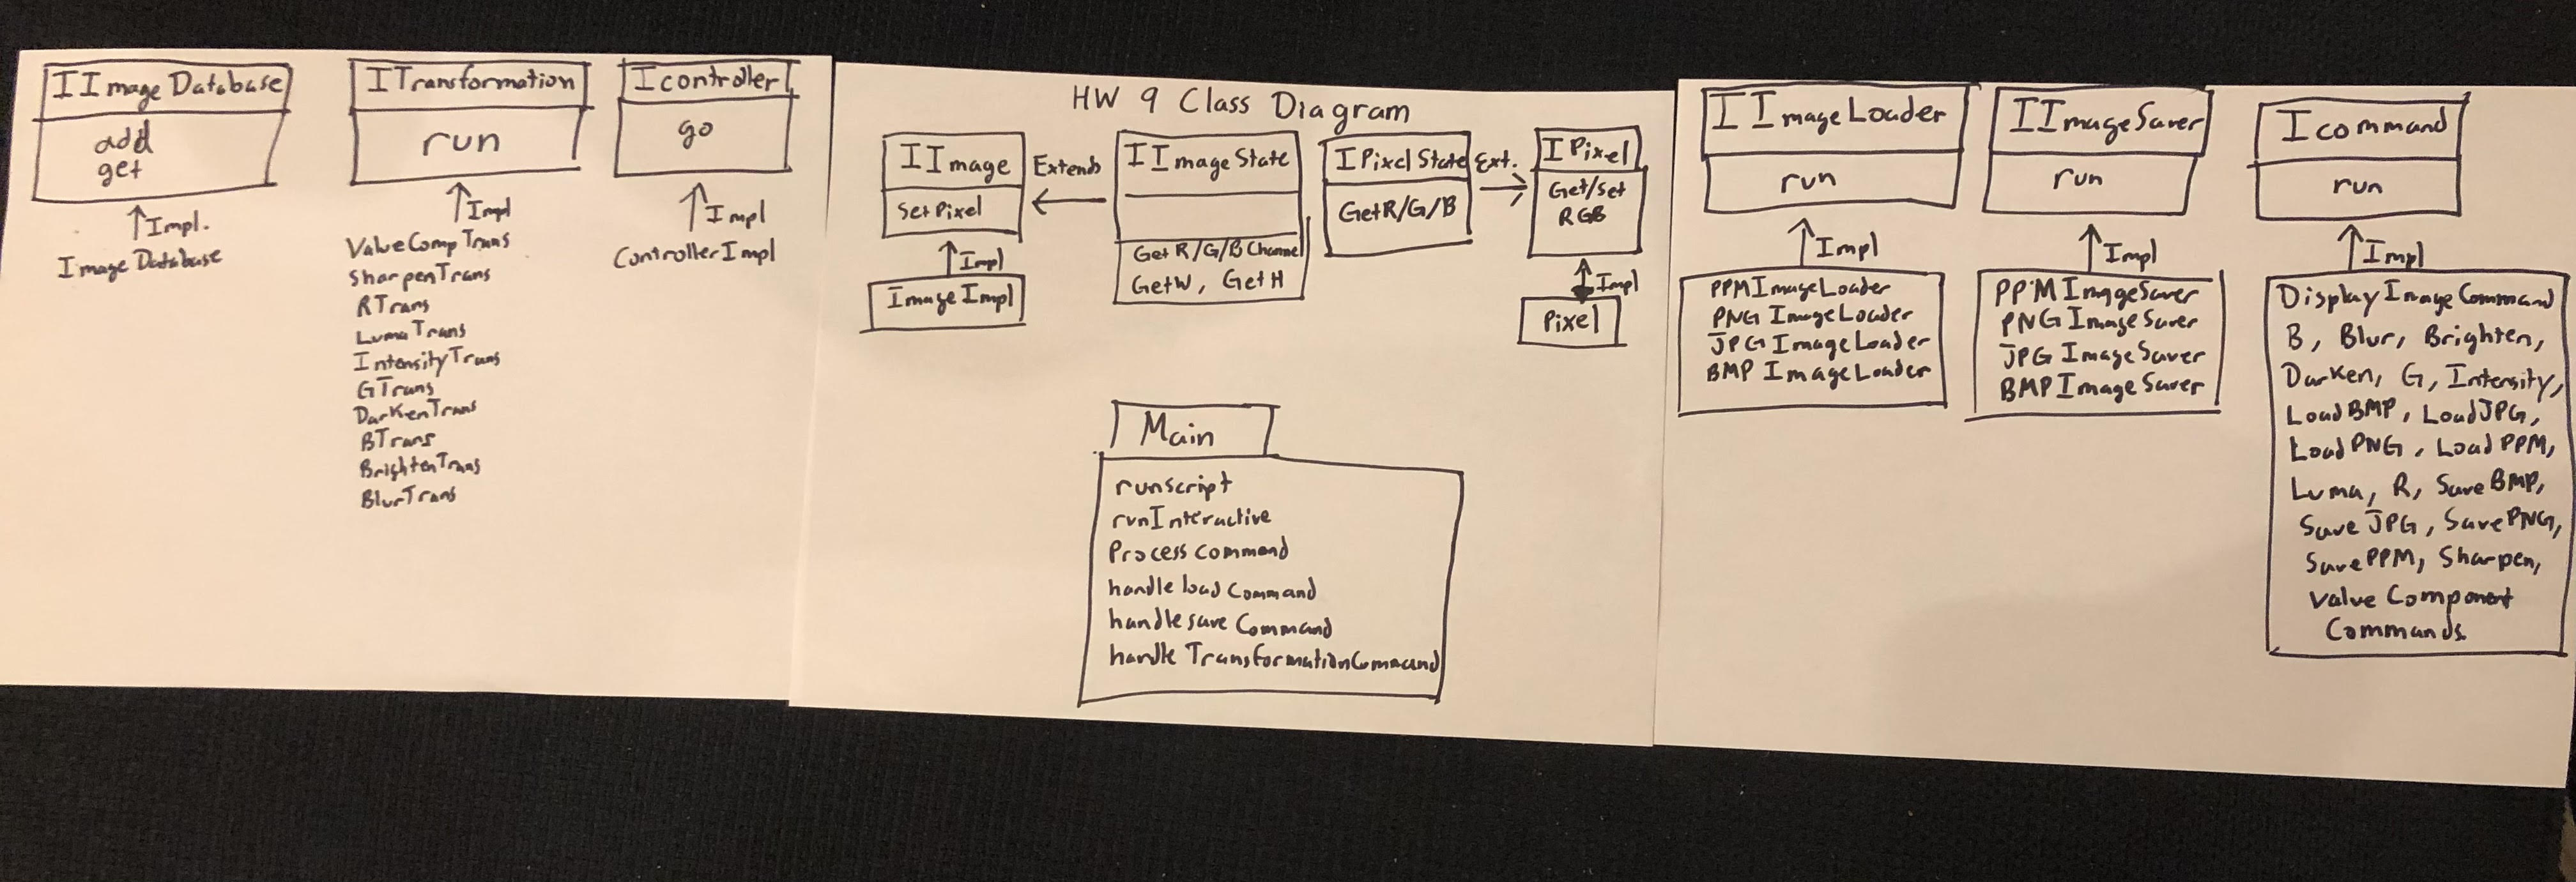 IImageDatabase
add
get
Impl.
ImageDatabase
ITransformation
run
Impl
ValueCompTrans
SharpenTrans
RTrans
LumaTrans
IntensityTrans
GTrans
DarkenTrans
BTrans
BrightenTrans
BlurTrans
Icontroller
go
Impl
ControllerImpl
HW 9 Class Diagram
IImage
SetPixel
Impl
ImageImpl
Extends
IImageState
Get R/G/B Channel
GetW, GetH
IPixelState
GetR/G/B
Ext.
IPixel
Get/Set
RGB
Impl
Pixel
Main
runscript
runInteractive
Process command
handle load Command
handle save Command
handle TransformationCommand
IImageLoader
run
Impl
PPMImageLoader
PNG ImageLoader
JPG ImageLoader
BMP ImageLoader
IImageSaver
run
Impl
PPM ImageSaver
PNG ImageSaver
JPG ImageSaver
BMP ImageSaver
Icommand
run
Impl
DisplayImageCommand
B, Blur, Brighten,
Darken, G, Intensity,
LoadBMP, LoadJPG,
LoadPNG, LoadPPM,
Luma, R, SaveBMP,
Save JPG, SavePNG,
SavePPM, Sharpen,
Value Component
Commands.